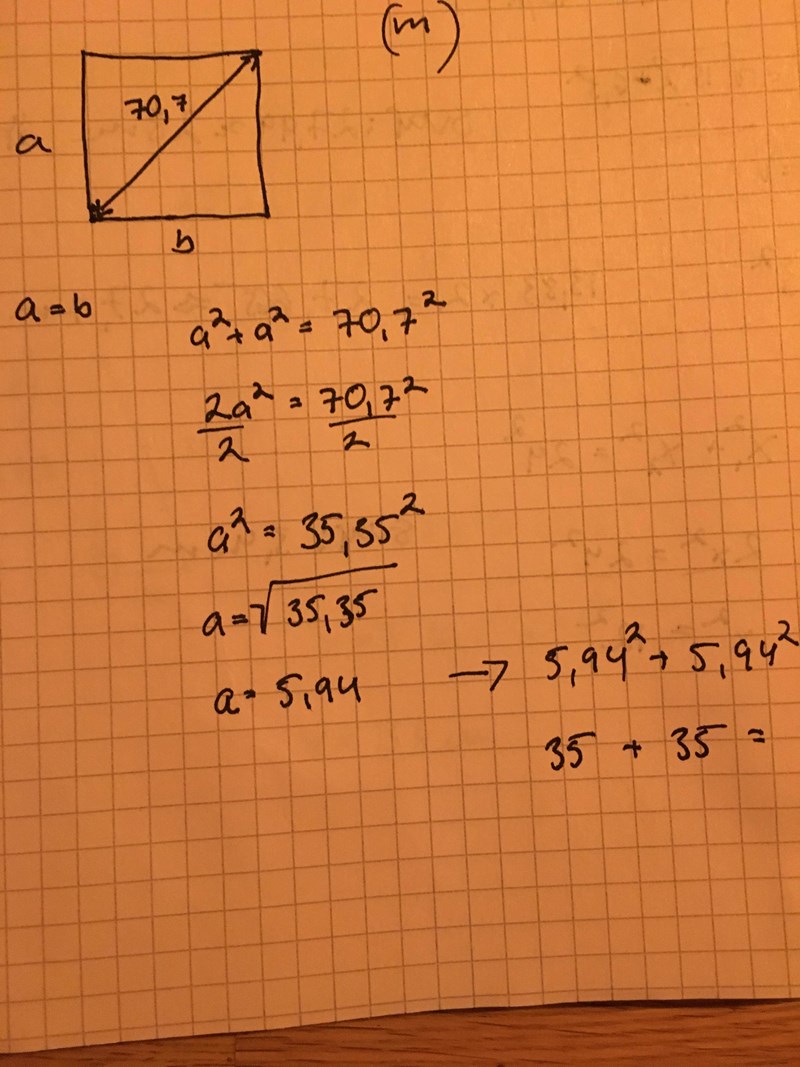 (m)
70,7
a
b
a = b
a² + a² = 70,7²
2a²/2 = 70,7²/2
a² = 35,35²
a = √35,35
a = 5,94 → 5,94² + 5,94²
35 + 35 =